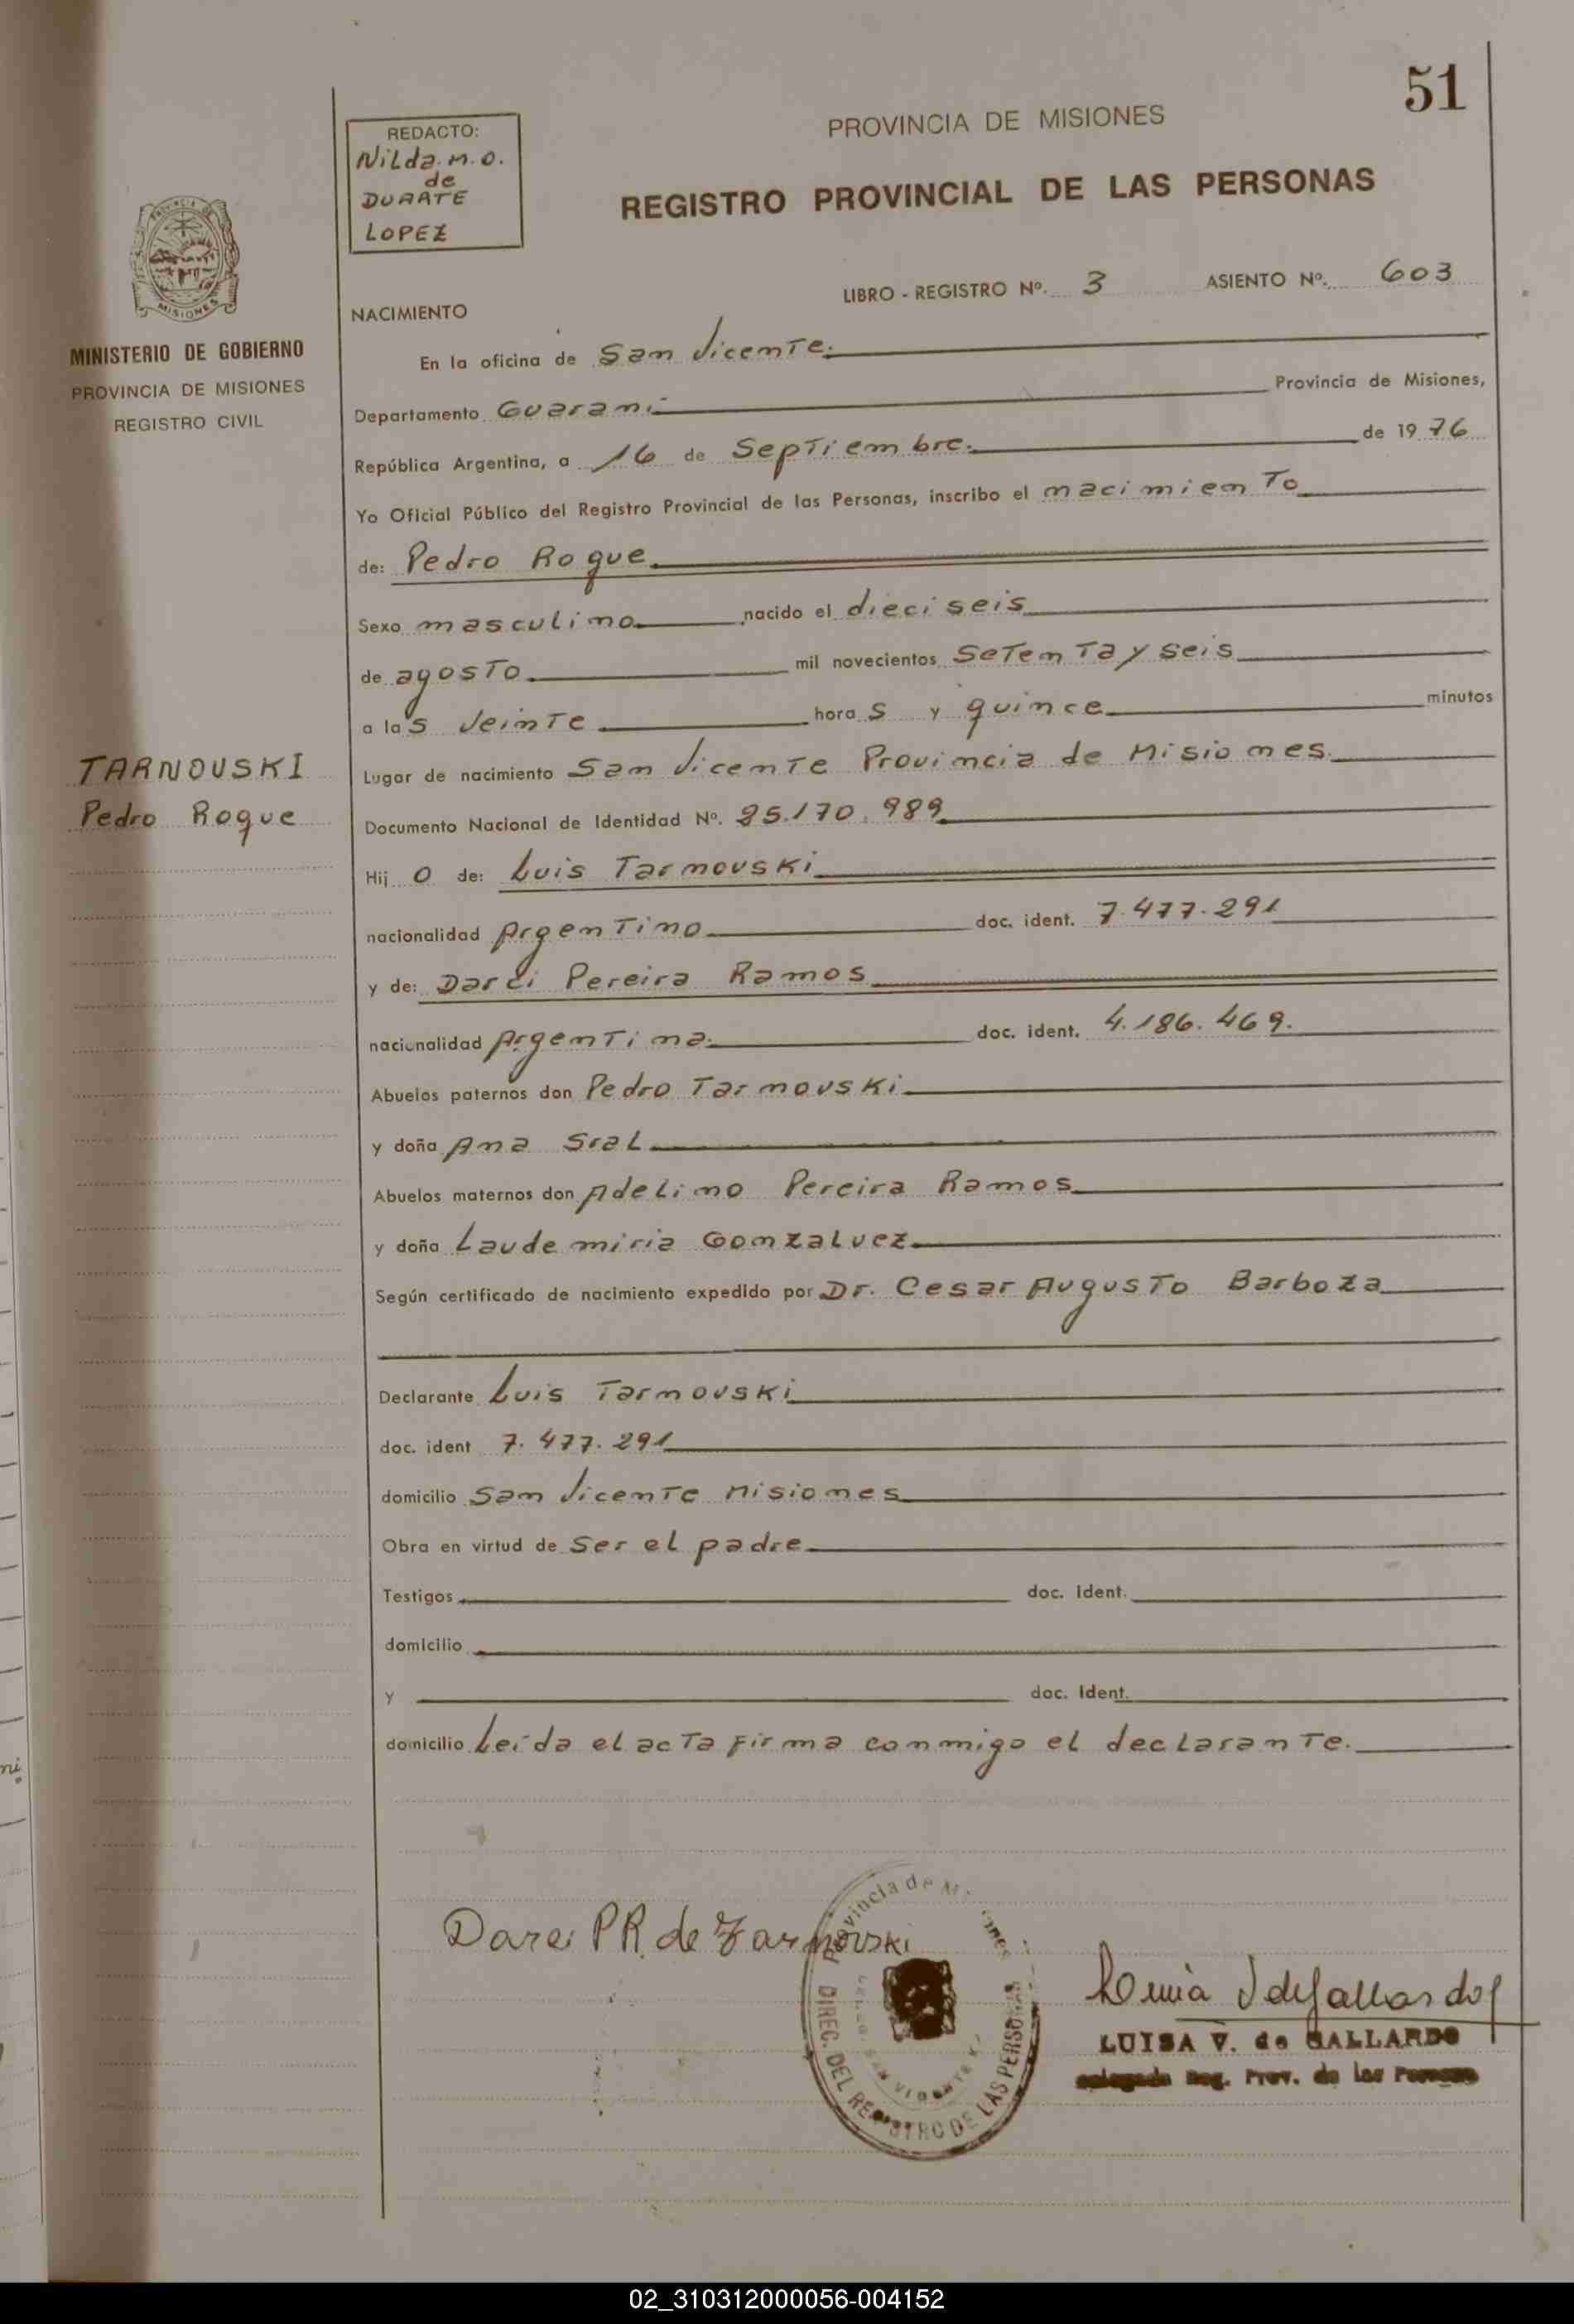 51
REDACTO:
Nilda. M. O.
de
DUARTE
LOPEZ
PROVINCIA DE MISIONES
REGISTRO PROVINCIAL DE LAS PERSONAS
LIBRO - REGISTRO Nº. 3 ASIENTO Nº. 603
MISIONES
MINISTERIO DE GOBIERNO
PROVINCIA DE MISIONES
REGISTRO CIVIL
NACIMIENTO
En la oficina de San Vicente.
Departamento Guaraní Provincia de Misiones,
República Argentina, a 16 de Septiembre. de 1976
Yo Oficial Público del Registro Provincial de las Personas, inscribo el nacimiento
de: Pedro Roque
Sexo masculino nacido el dieciseis
de agosto mil novecientos setenta y seis
a las veinte horas y quince minutos
TARNOUSKI
Pedro Roque
Lugar de nacimiento San Vicente Provincia de Misiones.
Documento Nacional de Identidad Nº. 25.170.989
Hijo de: Luis Tarnouski
nacionalidad Argentino doc. ident. 7.477.291
y de: Darci Pereira Ramos
nacionalidad Argentina. doc. ident. 4.186.469.
Abuelos paternos don Pedro Tarnouski
y doña Ana Sral
Abuelos maternos don Adelino Pereira Ramos
y doña Laudemiria Gonzalvez
Según certificado de nacimiento expedido por Dr. Cesar Augusto Barboza
Declarante Luis Tarnouski
doc. ident 7.477.291
domicilio San Vicente Misiones
Obra en virtud de ser el padre
Testigos doc. Ident.
domicilio
y doc. Ident.
domicilio Leída el acta firma conmigo el declarante.
Darci P R. de Tarnouski
Provincia de Misiones
DIREC. DEL REGISTRO DE LAS PERSONAS
SAN VICENTE
LUISA V. de GALLARDO
Delegada Reg. Prov. de las Personas
02_310312000056-004152